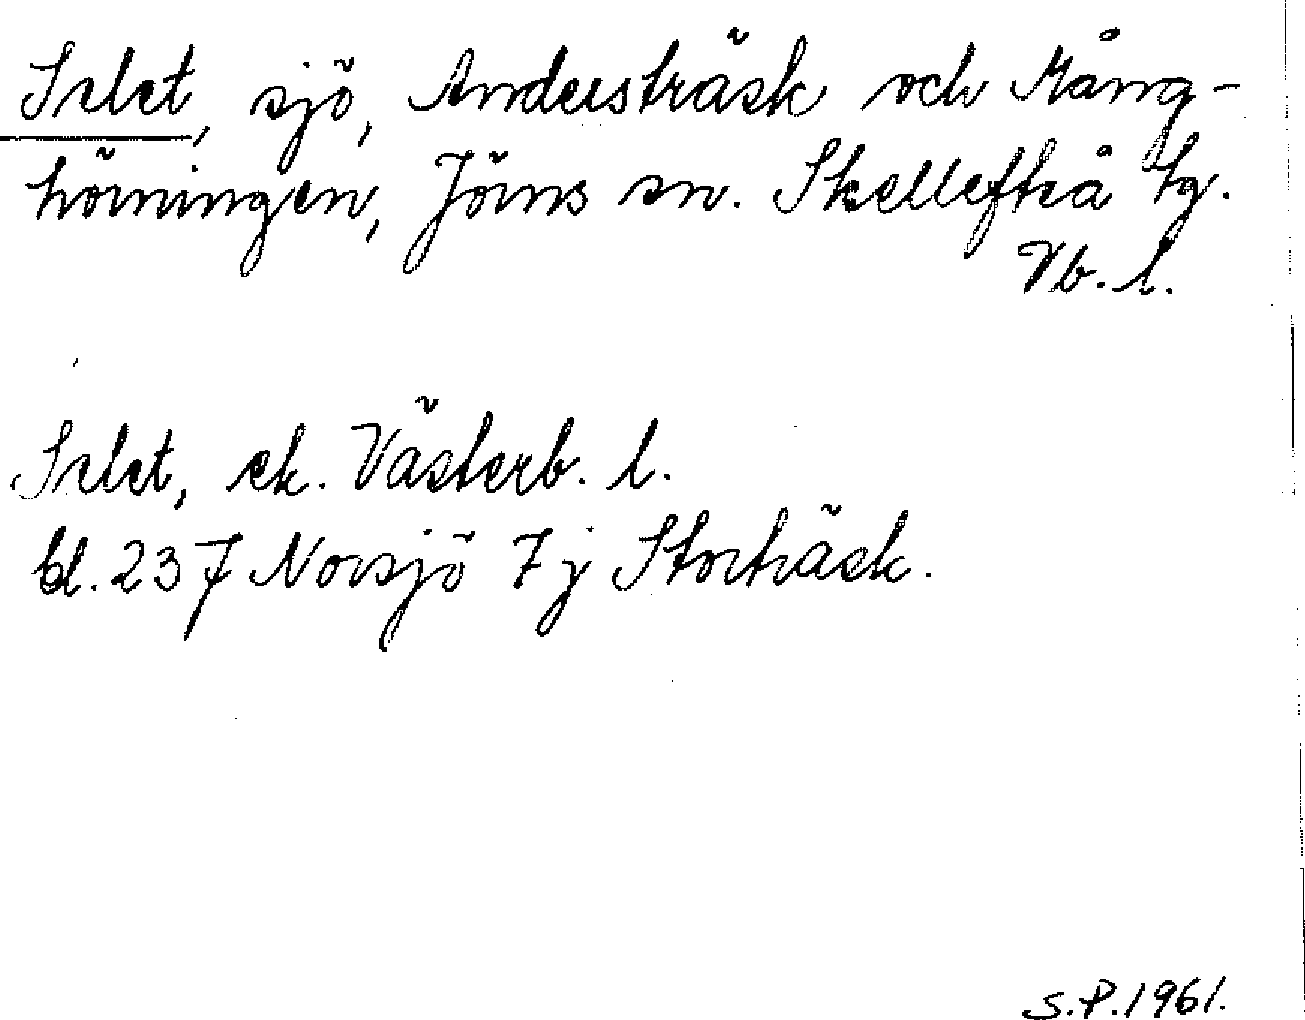 Selet, sjö, Andersträsk och Mång-
hörningen, Jörns sn. Skellefteå tg.
Vb. l.
Selet, ek. Västerb. l.
bl. 237 Norsjö 7j Storträsk.
S.P. 1961.